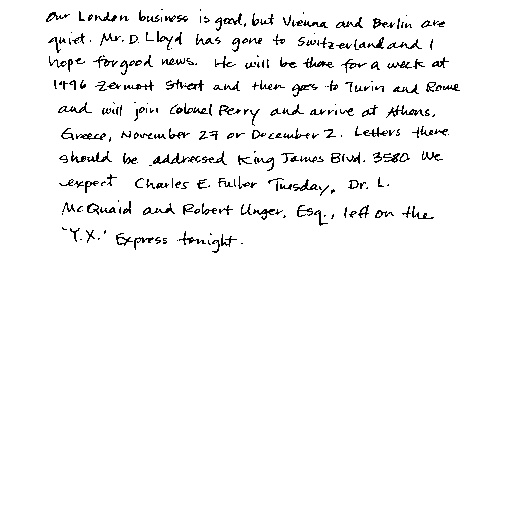 Our London business is good, but Vienna and Berlin are
quiet. Mr. D. Lloyd has gone to Switzerland and I
hope for good news. He will be there for a week at
1496 Zermott Street and then goes to Turin and Rome
and will join Colonel Perry and arrive at Athens,
Greece, November 27 or December 2. Letters there
should be addressed King James Blvd. 3580. We
expect Charles E. Fuller Tuesday, Dr. L.
McQuaid and Robert Unger, Esq., left on the
"Y.X." Express tonight.